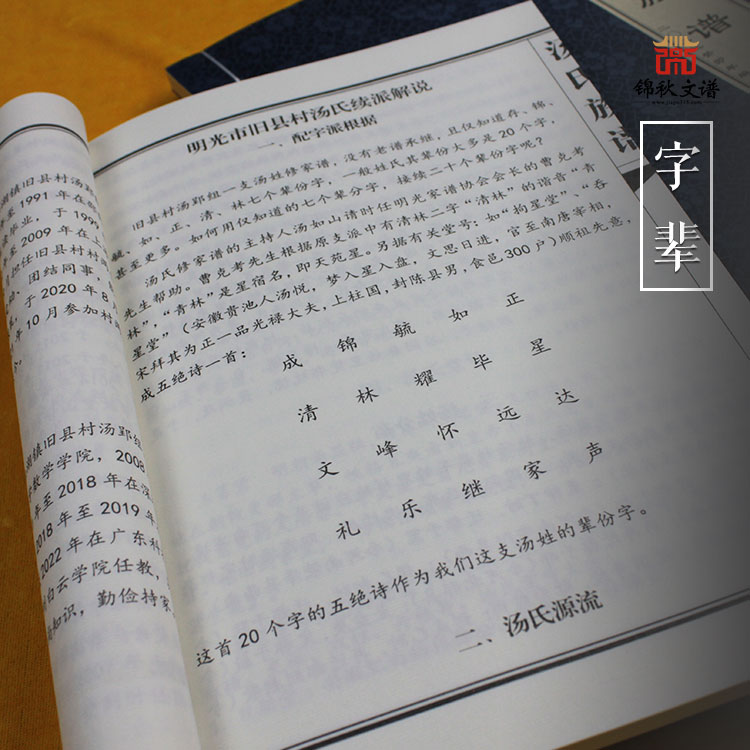 汤氏族谱
谱
锦秋文谱
字辈
明光市旧县村汤氏续派解说
一、配字派根据
旧县村汤郢组一支汤姓修家谱，没有老谱承继，且仅知道存、锦、
毓、如、正、清、林七个辈份字，一般姓氏其辈份大多是20个字，
甚至更多。如何用仅知道的七个辈分字，接续二十个辈份字呢？
汤氏修家谱的主持人汤如山请时任明光家谱协会会长的曹克考
先生帮助。曹克考先生根据原支派中有清林二字“清林”的谐音“青
林”，“青林”是星宿名，即天苑星。另据有关堂号：如“拘星堂”、“吞
星堂”（安徽贵池人汤悦，梦入星入盘，文思日进，官至南唐宰相，
宋拜其为正一品光禄大夫，上柱国，封陈县男，食邑300户）顺祖先意，
成五绝诗一首：
成 锦 毓 如 正
清 林 耀 毕 星
文 峰 怀 远 达
礼 乐 继 家 声
这首20个字的五绝诗作为我们这支汤姓的辈份字。
二、汤氏源流
镇旧县村汤郢
至1991年在
毕业，于199
至2009年在
担任旧县村村
团结同事，
，于2020年8
年10月参加村
镇旧县村汤郢组
数学学院，2008
至2018年在深
2018年至2019年
2022年在广东科
白云学院任教，
知识，勤俭持家